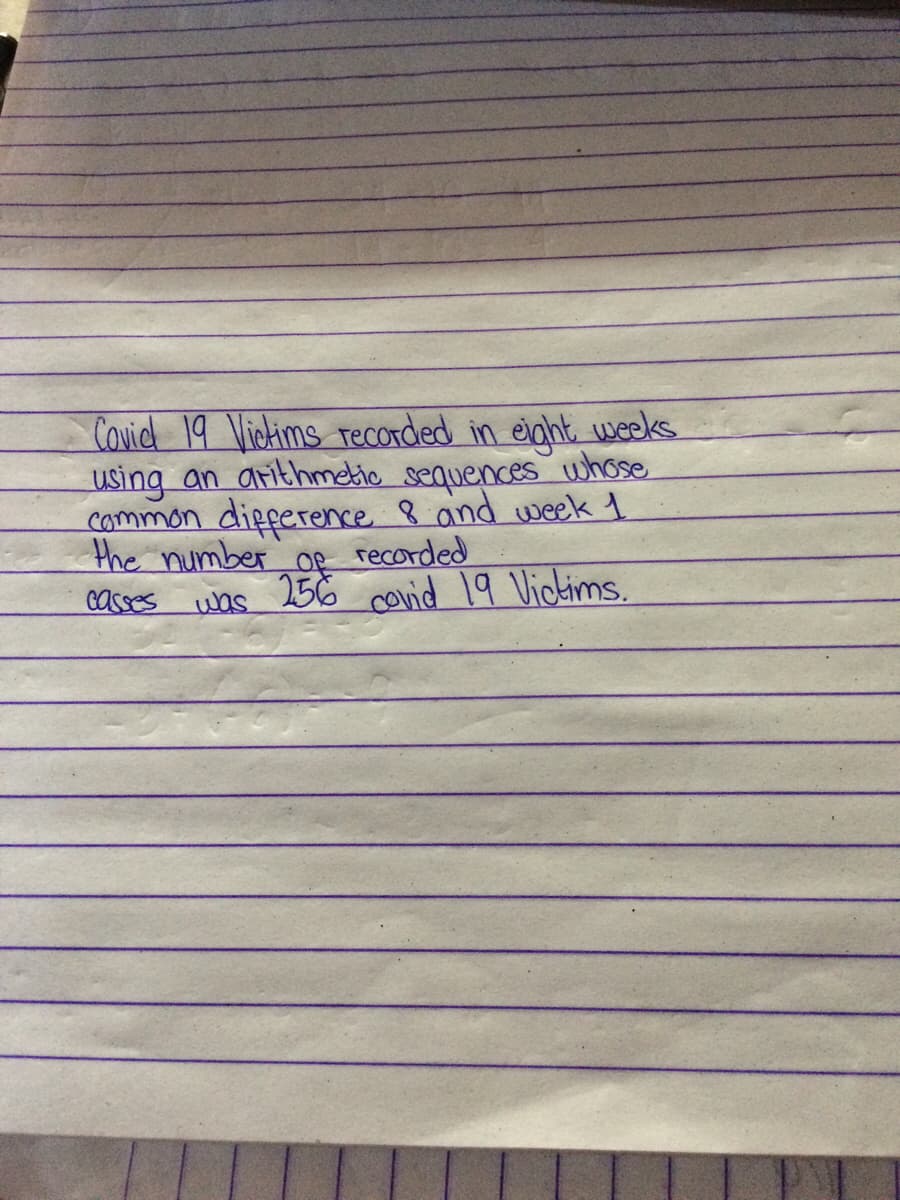 Covid 19 Victims recorded in eight weeks
using an arithmetic sequences whose
common difference 8 and week 1
the number of recorded
casses was 256 covid 19 Victims.